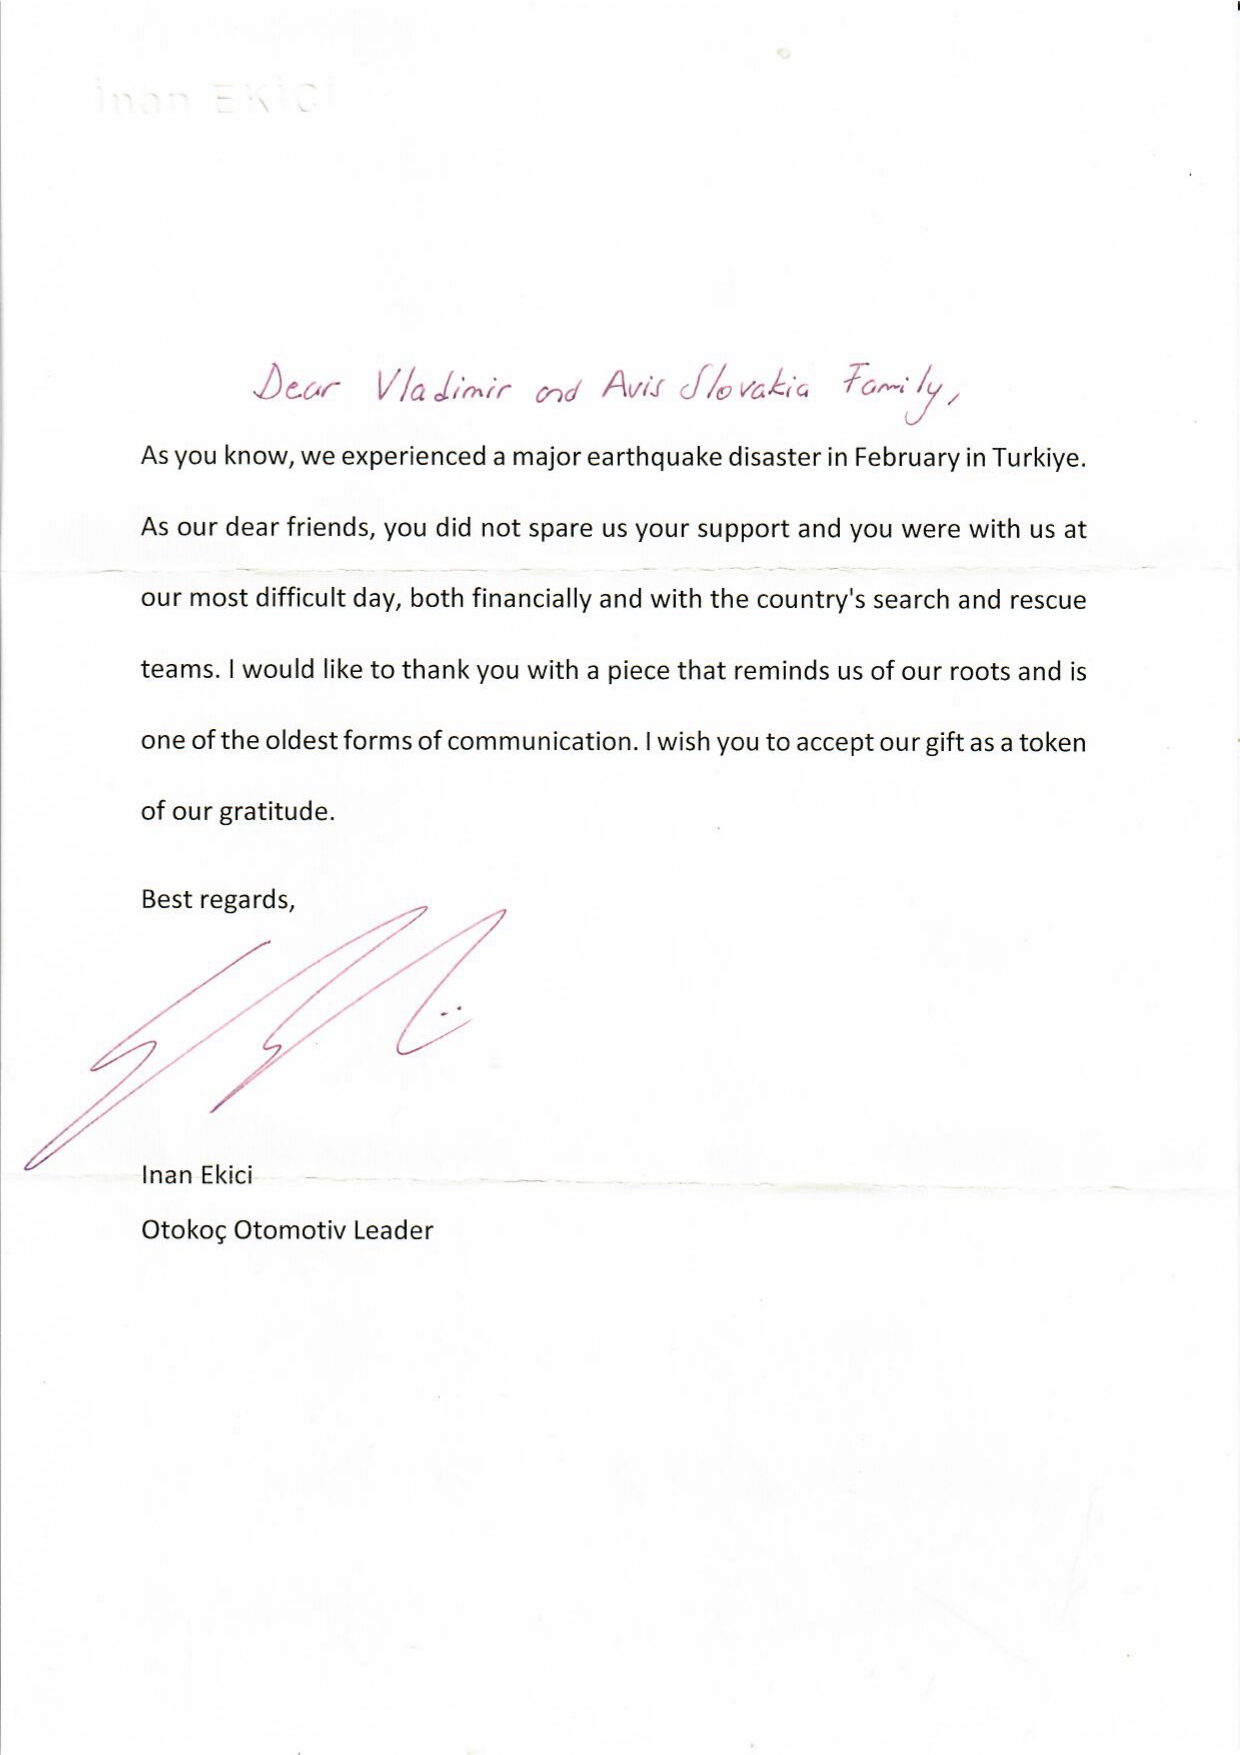 inan EKİCİ
Dear Vladimir and Avis Slovakia Family,
As you know, we experienced a major earthquake disaster in February in Turkiye.
As our dear friends, you did not spare us your support and you were with us at
our most difficult day, both financially and with the country's search and rescue
teams. I would like to thank you with a piece that reminds us of our roots and is
one of the oldest forms of communication. I wish you to accept our gift as a token
of our gratitude.
Best regards,
Inan Ekici
Otokoç Otomotiv Leader